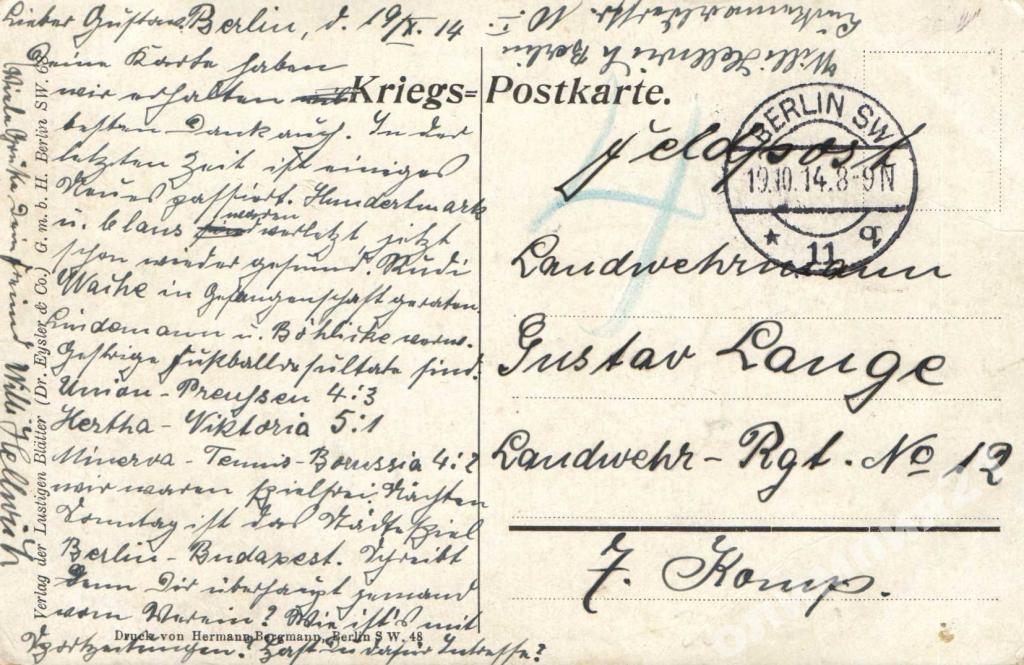 Lieber Gustav. Berlin, d. 19/X. 14
Deine Karte haben
wir erhalten
besten Dank auch. In der
letzten Zeit ist einiges
Neues passiert. Hundertmark
u. Claus waren verletzt jetzt
schon wieder gesund. Rudi
Wache in Gefangenschaft geraten.
Lindemann u. Böhlicke verw.
Gestrige Fußballresultate sind:
Union - Preußen 4:3
Hertha - Viktoria 5:1
Minerva - Tennis-Borussia 4:2
wir waren spielfrei. Nächsten
Sonntag ist das Städtespiel
Berlin-Budapest. Schreibt
denn Dir überhaupt jemand
vom Verein? Wie ist's mit
Sportzeitungen? Hast Du dafür Intresse?
Viele Grüße Dein Freund Willi Hellwich
Verlag der Lustigen Blätter (Dr. Eysler & Co.) G. m. b. H. Berlin SW. 68
Druck von Hermann Bergmann, Berlin SW. 48
Willi Hellwich Berlin
Kriegs-Postkarte.
Feldpost
BERLIN SW
19.10.14.8-9N
* 11 q
4
Landwehrmann
Gustav Lange
Landwehr-Rgt. No 12
7. Komp.